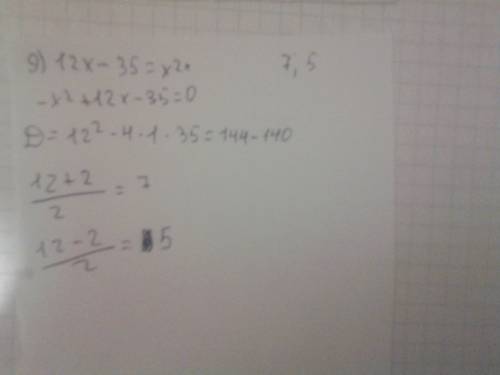 9) 12x - 35 = x².    7, 5
-x² + 12x - 35 = 0
D = 12² - 4 · 1 · 35 = 144 - 140
(12 + 2)/2 = 7
(12 - 2)/2 = 5